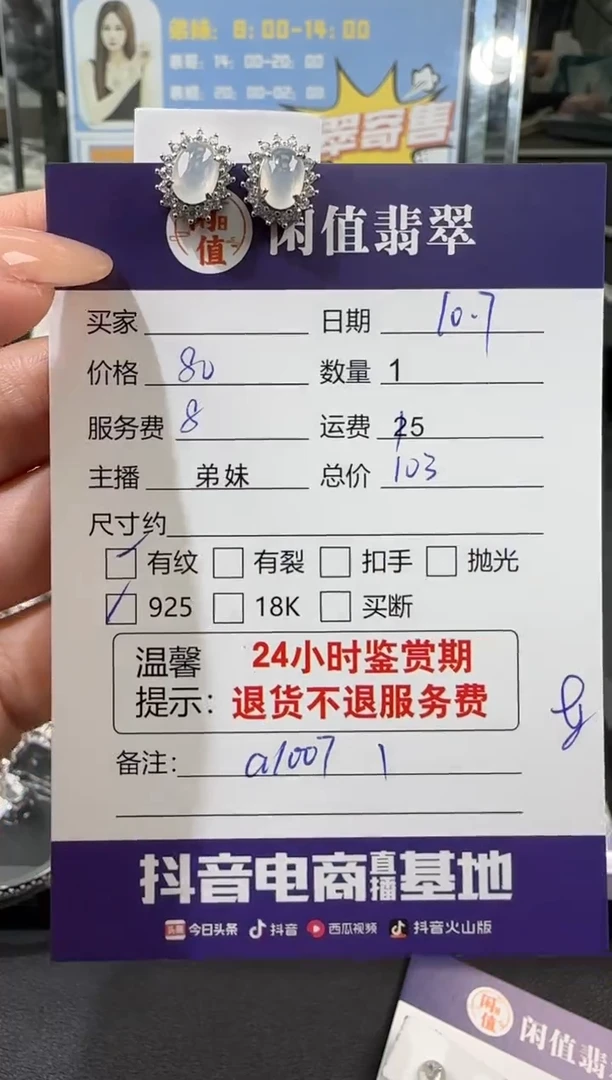 弟妹：8：00-14：00
表哥：14：00-20：00
表姐：20：00-02：00
翠寄售
闲值
闲值翡翠
买家 日期 10.7
价格 80 数量 1
服务费 8 运费 25
主播 弟妹 总价 103
尺寸约
有纹 有裂 扣手 抛光
925 18K 买断
温馨 24小时鉴赏期
提示： 退货不退服务费
备注： a1007 1
抖音电商直播基地
头条 今日头条 抖音 西瓜视频 抖音火山版
闲值 闲值翡